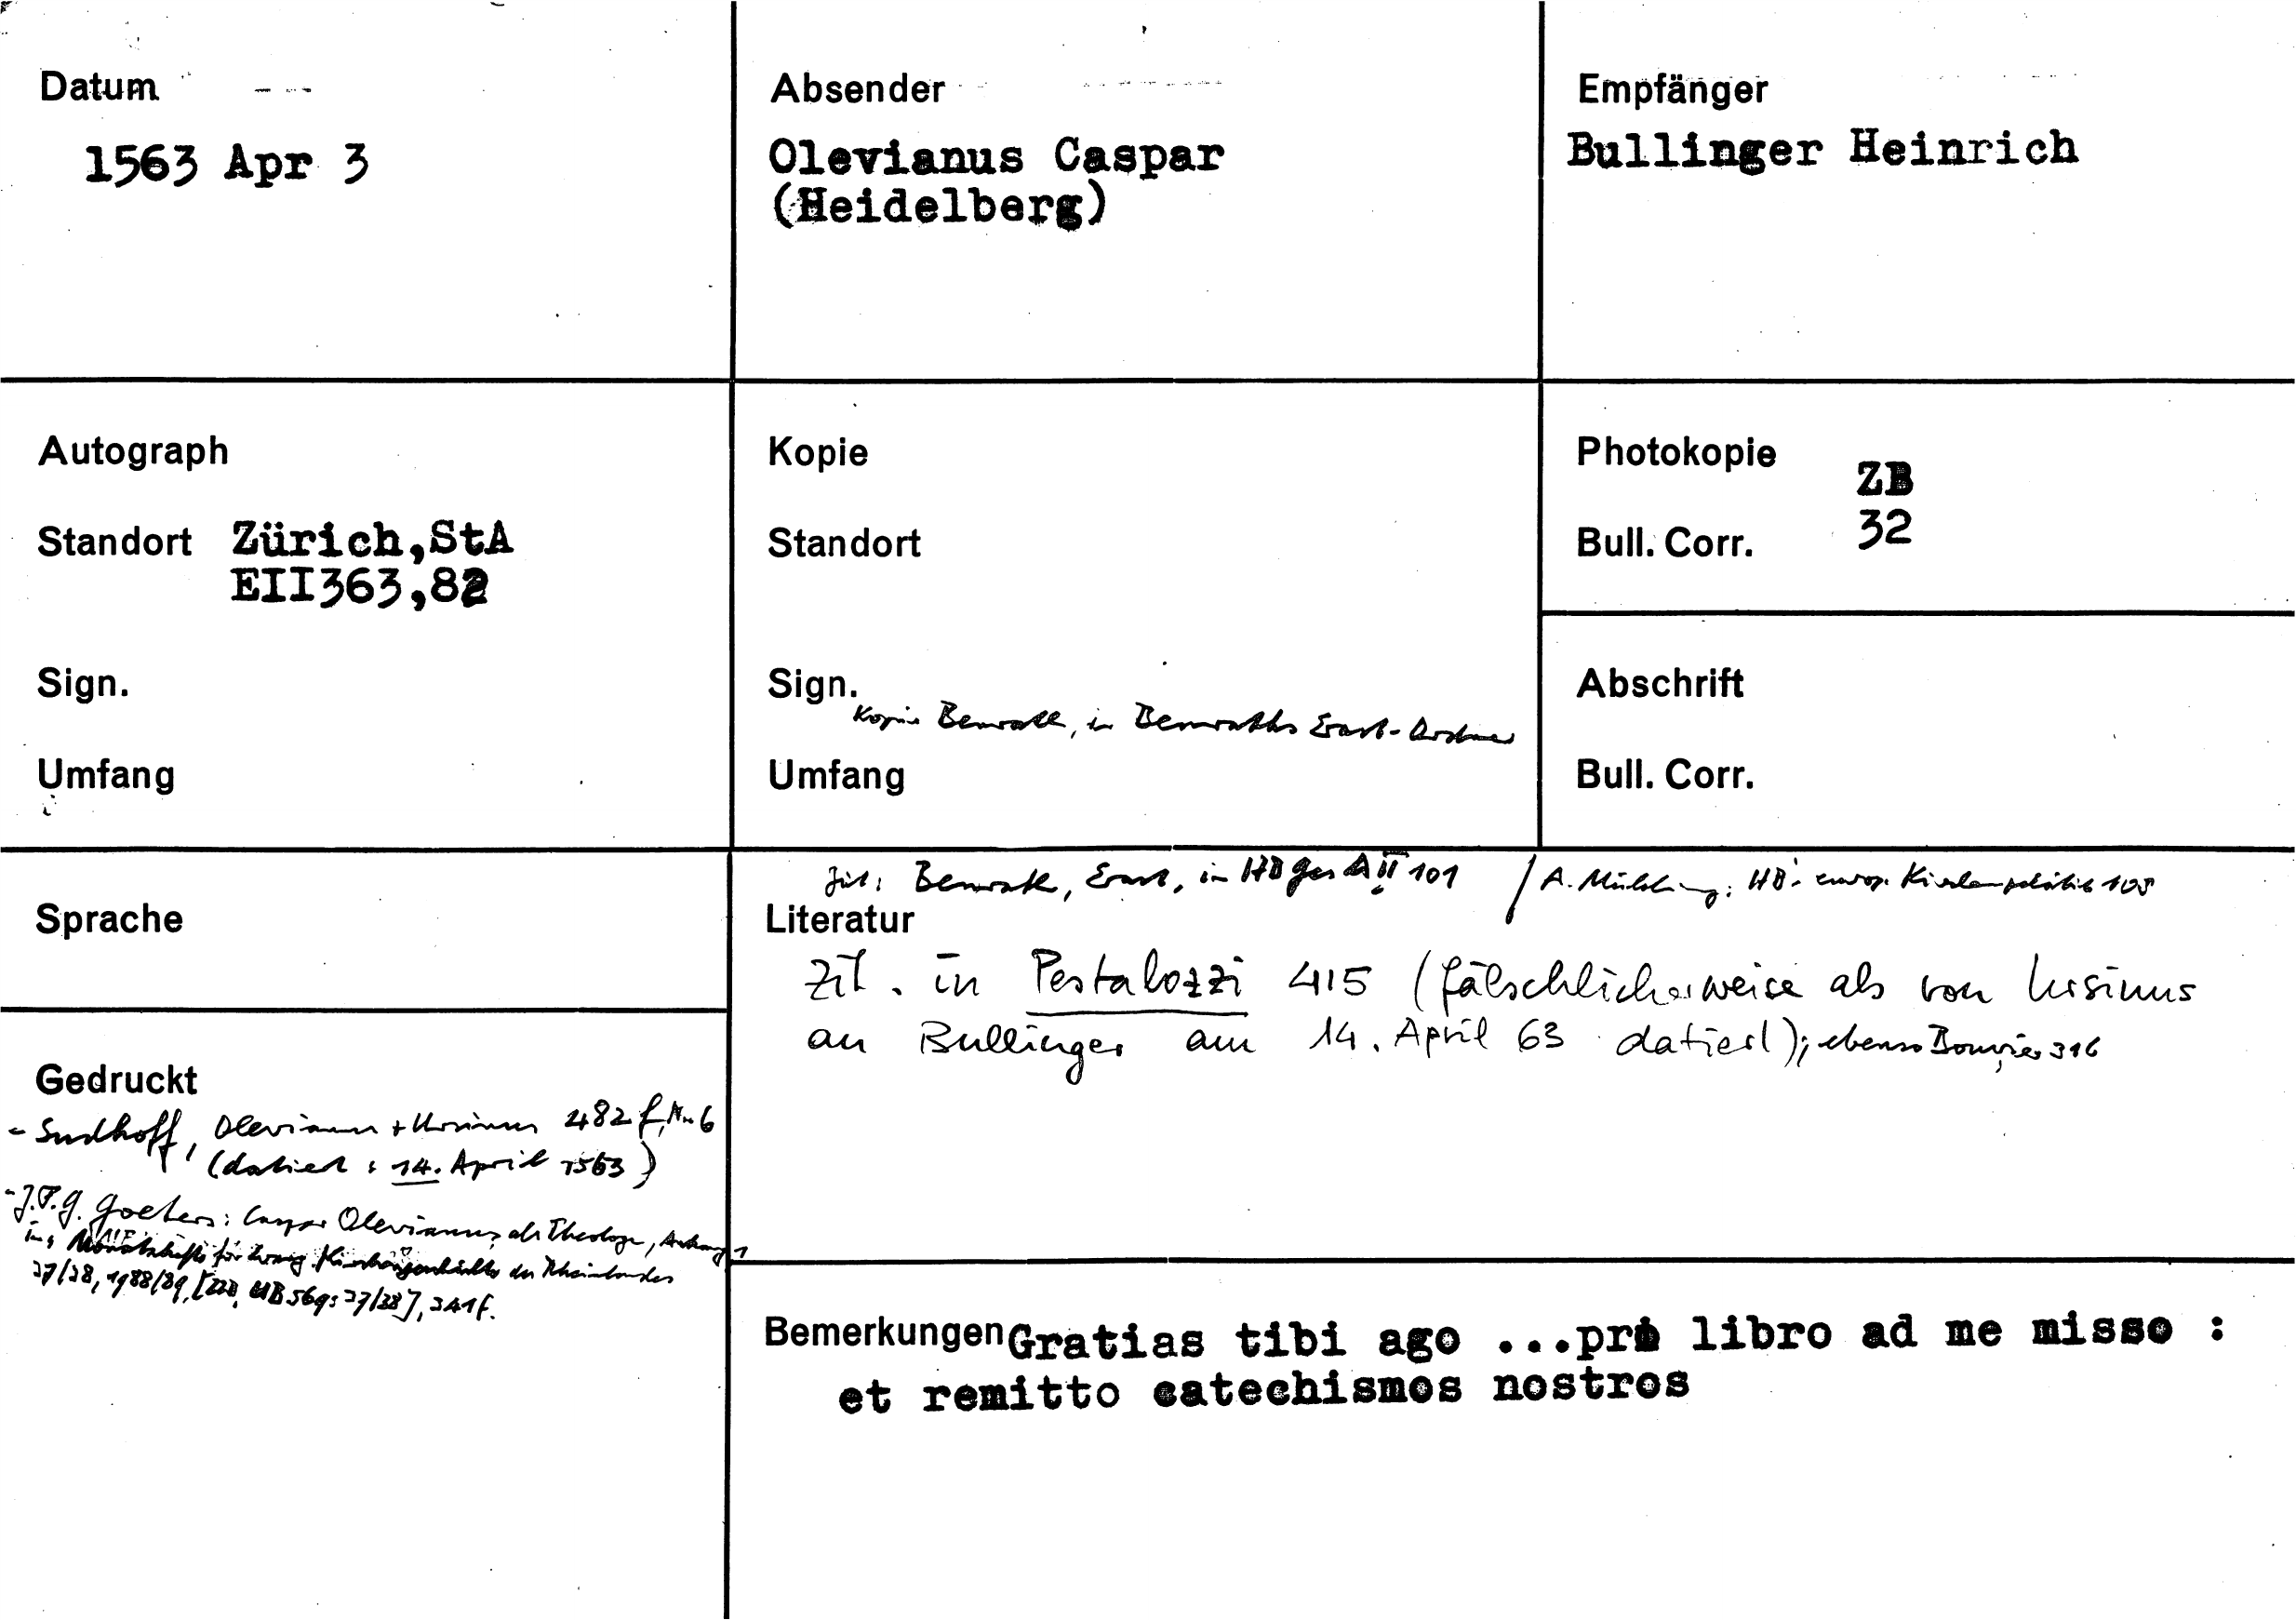 Datum
1563 Apr 3
Absender
Olevianus Caspar
(Heidelberg)
Empfänger
Bullinger Heinrich
Autograph
Standort Zürich,StA
EII363,82
Sign.
Umfang
Kopie
Standort
Sign.
Kopie Benrath, in Benraths Erast-Ordner
Umfang
Photokopie ZB
Bull. Corr. 32
Abschrift
Bull. Corr.
Sprache
Gedruckt
- Sudhoff, Olevianus + Ursinus 482 f, Nr. 6
(datiert : 14. April 1563)
- J.F.G. Goeters: Caspar Olevianus als Theologe, Anhang 1
in: Monatshefte für Evang. Kirchengeschichte des Rheinlandes
37/38, 1988/89, 341f.
Zit: Benrath, Erast, in HBGesA II 101 / A. Mühling: HB's europ. Kirchenpolitik 108
Literatur
Zit. in Pestalozzi 415 (fälschlicherweise als von Ursinus
an Bullinger am 14. April 63 datiert); ebenso Bouvier 316
Bemerkungen Gratias tibi ago ...pro libro ad me misso :
et remitto catechismos nostros